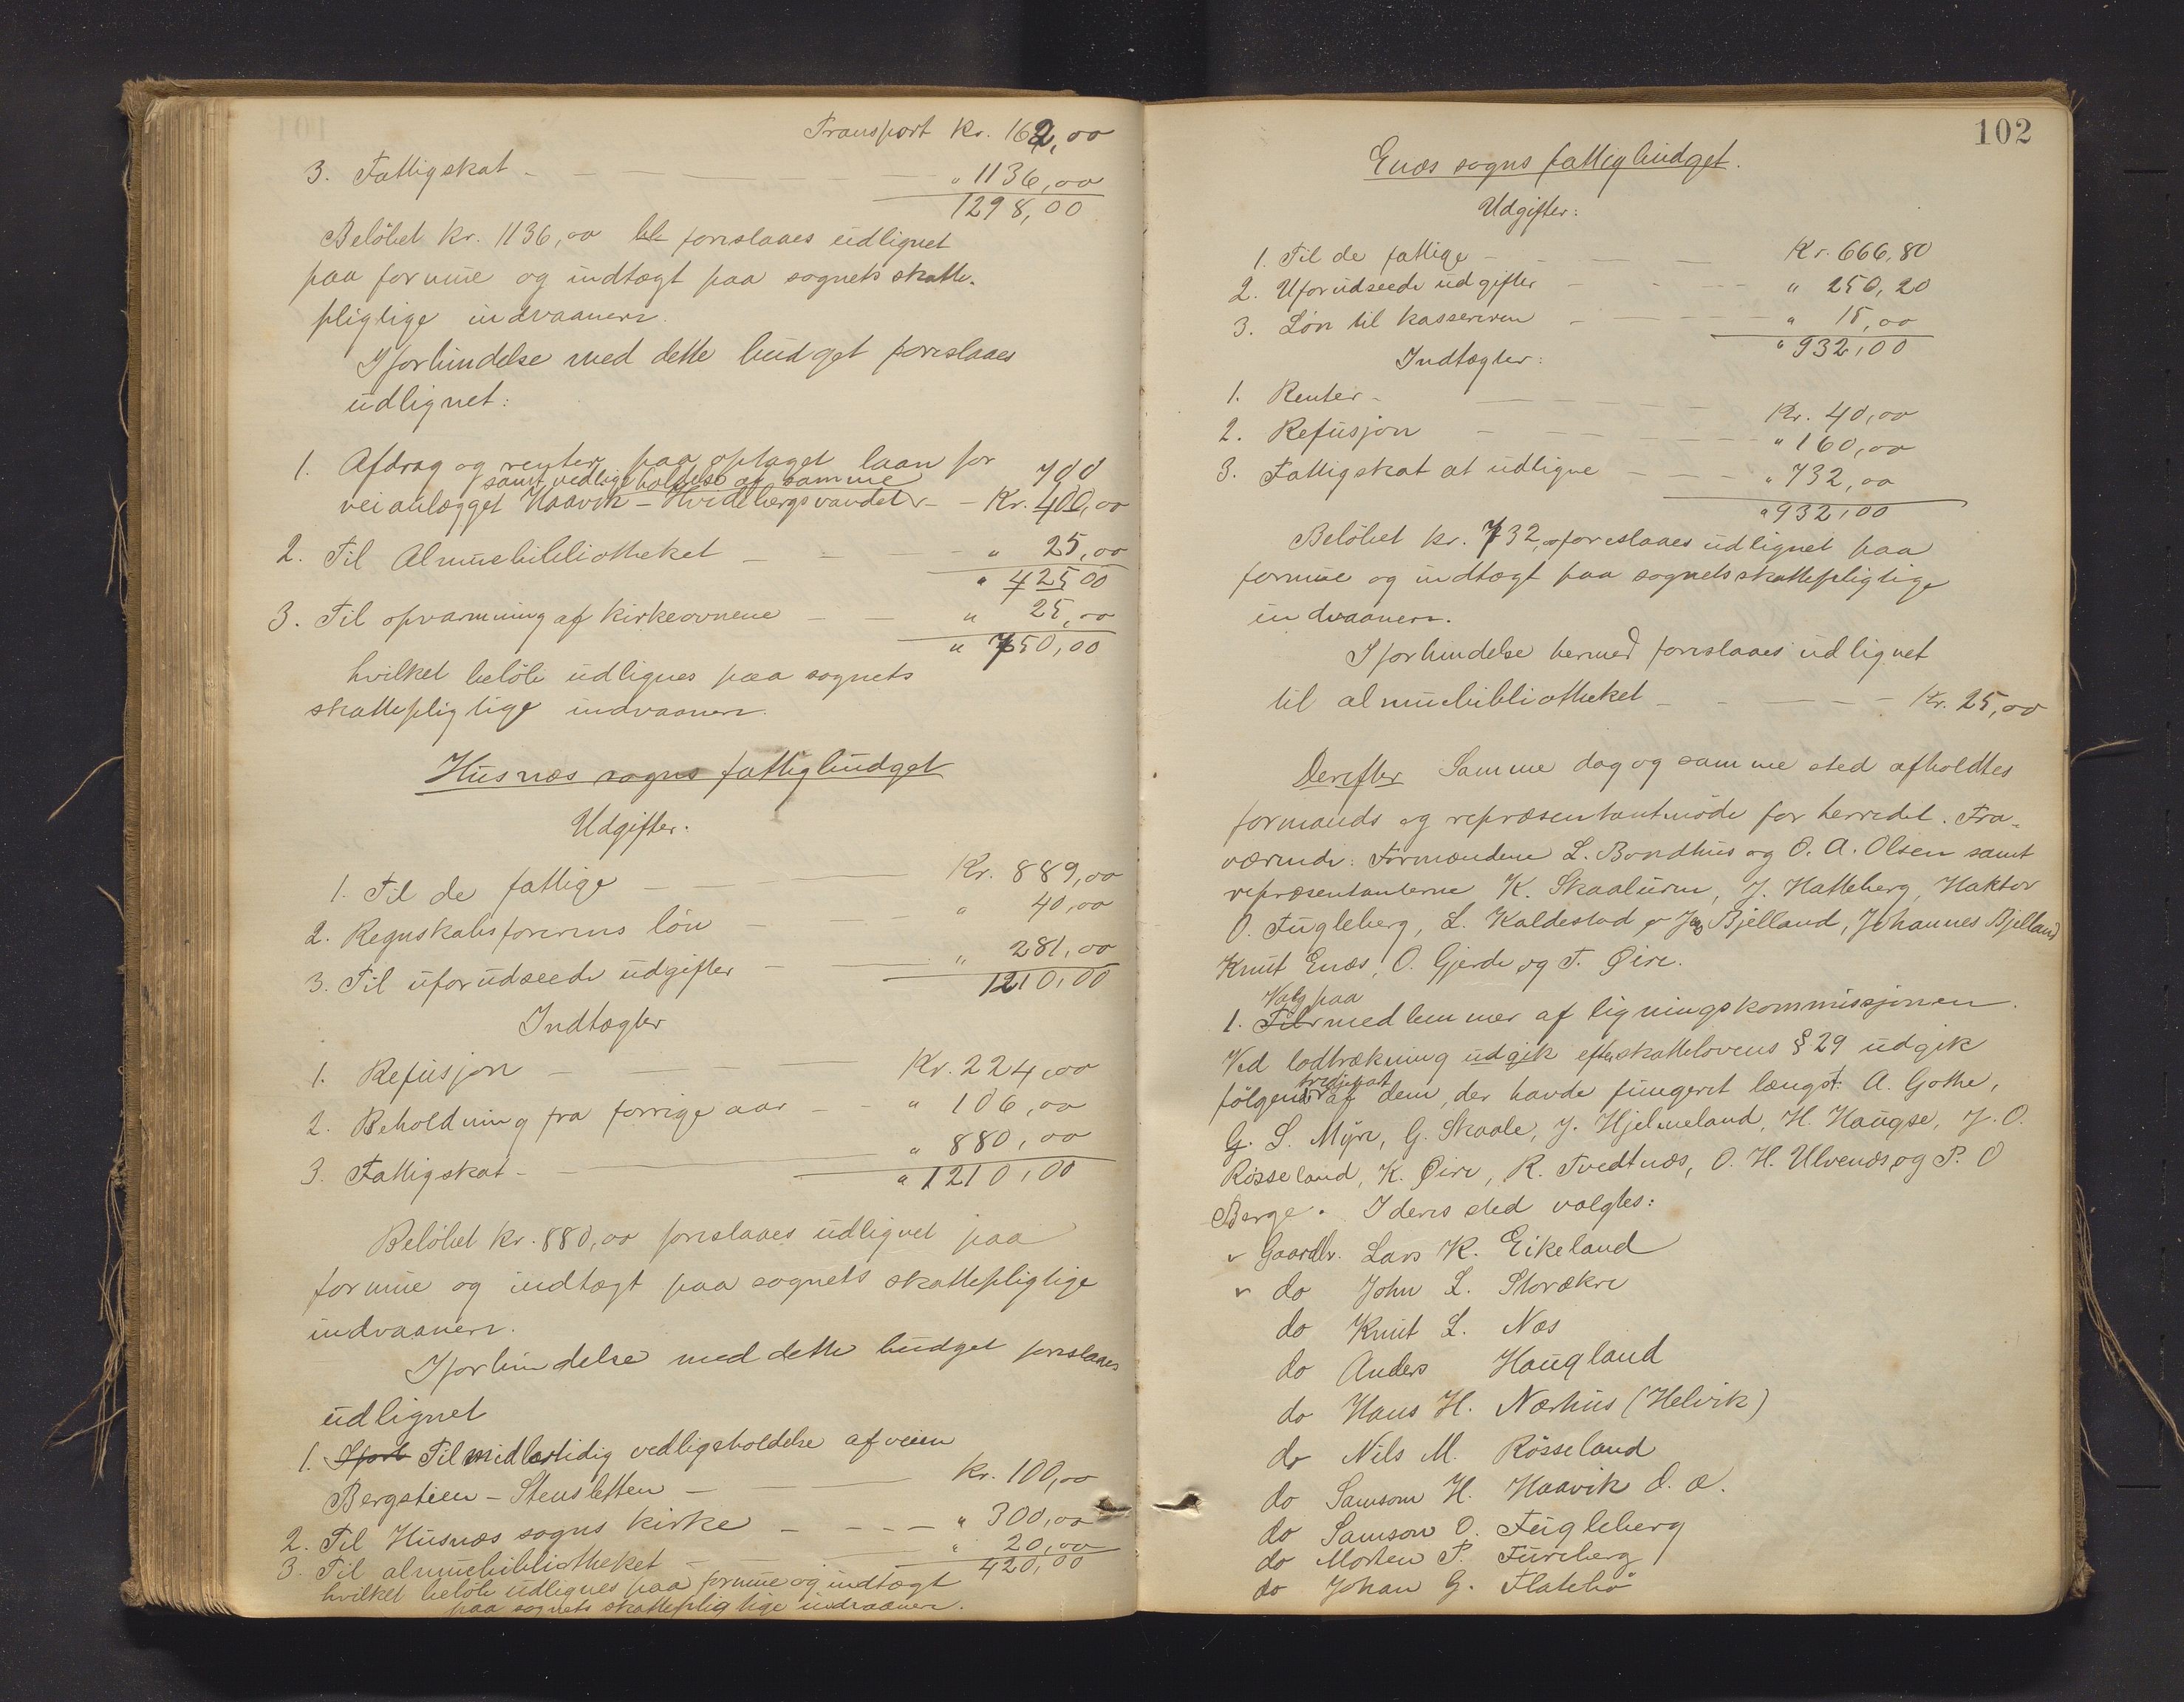 Transport Kr. 162,00
3. Fattigskat - " 1136,00
1298,00
Beløbet kr. 1136,00 foreslaaes udlignet
paa formue og indtægt paa sognets skatte-
pligtige indvaanere.
I forbindelse med dette budget foreslaaes
udlignet:
1. Afdrag og renter paa optaget laan for
samt vedligeholdelse af samme 700
veianlægget Haavik - Hvidebergsvandet - Kr. 400,00
2. Til Almuebibliotheket - " 25,00
" 425 00
3. Til opvarmning af kirkeovnene - " 25,00
" 750,00
hvilket beløb udlignes paa sognets
skattepligtige indvaanere.
Husnæs sogns fattigbudget
Udgifter.
1. Til de fattige - Kr. 889,00
2. Regnskabsførerens løn - " 40,00
3. Til uforudseede udgifter - " 281,00
1210,00
Indtægter
1. Refusjon - Kr. 224,00
2. Beholdning fra forrige aar - " 106,00
3. Fattigskat - " 880,00
" 1210,00
Beløbet kr. 880,00 foreslaaes udlignet paa
formue og indtægt paa sognets skattepligtige
indvaanere.
I forbindelse med dette budget foreslaaes
udlignet
1. Til midlertidig vedligeholdelse af veien
Bergstien - Stensletten - Kr. 100,00
2. Til Husnæs sogns kirke - " 300,00
3. Til almuebibliotheket - " 20,00
420,00
hvilket beløb udlignes paa formue og indtægt
paa sognets skattepligtige indvaanere.
102
Enæs sogns fattigbudget.
Udgifter:
1. Til de fattige - Kr. 666,80
2. Uforudseede udgifter - " 250,20
3. Løn til kassereren - " 15,00
" 932,00
Indtægter:
1. Renter - Kr. 40,00
2. Refusjon - " 160,00
3. Fattigskat at udligne - " 732,00
" 932,00
Beløbet kr. 732,00 foreslaaes udlignet paa
formue og indtægt paa sognets skattepligtige
indvaanere.
I forbindelse hermed foreslaaes udlignet
til almuebibliotheket - Kr. 25,00
Derefter Samme dag og samme sted afholdtes
formands og repræsentantmøde for herredet. Fra-
værende: Formændene L. Bondhus og O. A. Olsen samt
repræsentanterne K. Skaaluren, J. Hatteberg, Haktor
O. Fugleberg, L. Kaldestad Bjelland, Johannes Bjelland
Knut Enæs, O. Gjerde og T. Øire.
Valg paa
1. medlemmer af ligningskommissjonen.
Ved lodtrækning udgik efter skattelovens § 29 udgik
tredjepart
følgende af dem, der havde fungeret længst: A. Gothe,
G. S. Myre, G. Skaale, J. Hjelmeland, H. Haugse, J. O.
Røsseland, K. Øire, R. Tvedtnæs, O. H. Ulvenæs og P. O
Berge. I deres sted valgtes:
Gaardbr. Lars K. Eikeland
do John L. Storækre
do Knut L. Næs
do Anders Haugland
do Hans H. Nærhus (Helvik)
do Nils M. Røsseland
do Samson H. Haavik d. æ.
do Samson O. Fugleberg
do Morten P. Fureberg
do Johan G. Flatebø